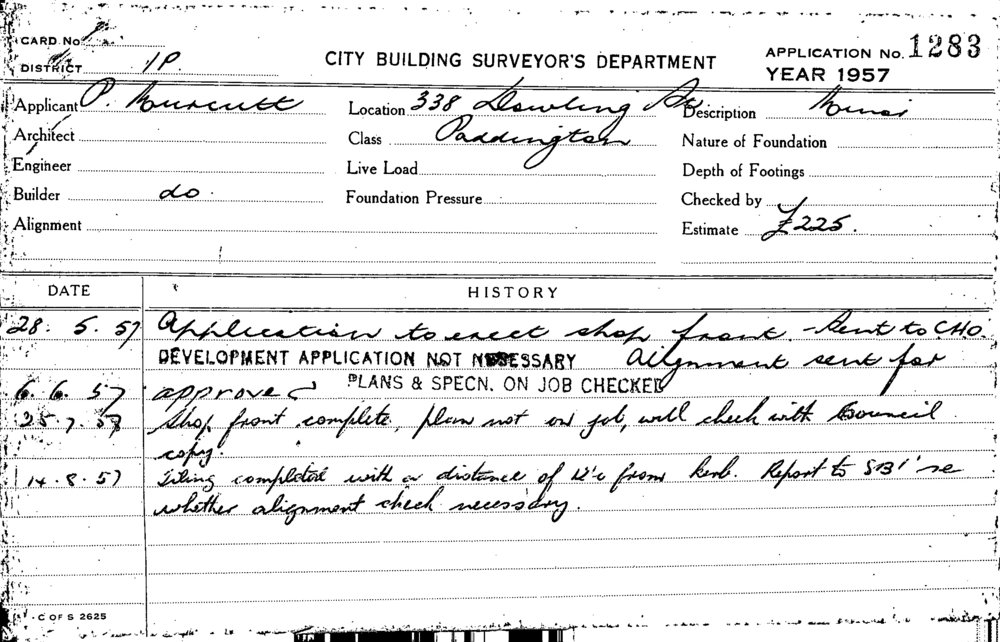 CARD No.
DISTRICT 1P.
CITY BUILDING SURVEYOR'S DEPARTMENT
APPLICATION No. 1283
YEAR 1957
Applicant P. Murcutt
Location 338 Dowling St
Description Minor
Architect
Class Paddington
Nature of Foundation
Engineer
Live Load
Depth of Footings
Builder do.
Foundation Pressure
Checked by
Alignment
Estimate £225.
DATE HISTORY
28. 5. 57 Application to erect shop front. - Sent to C.H.O.
DEVELOPMENT APPLICATION NOT NECESSARY Alignment sent for
6. 6. 57 approved PLANS & SPECN. ON JOB CHECKED
25. 7. 57 Shop front complete, plan not on job, will check with Council
copy.
14. 8. 57 Tiling completed with a distance of from kerb. Report to SBI re
whether alignment check necessary.
C OF S 2625